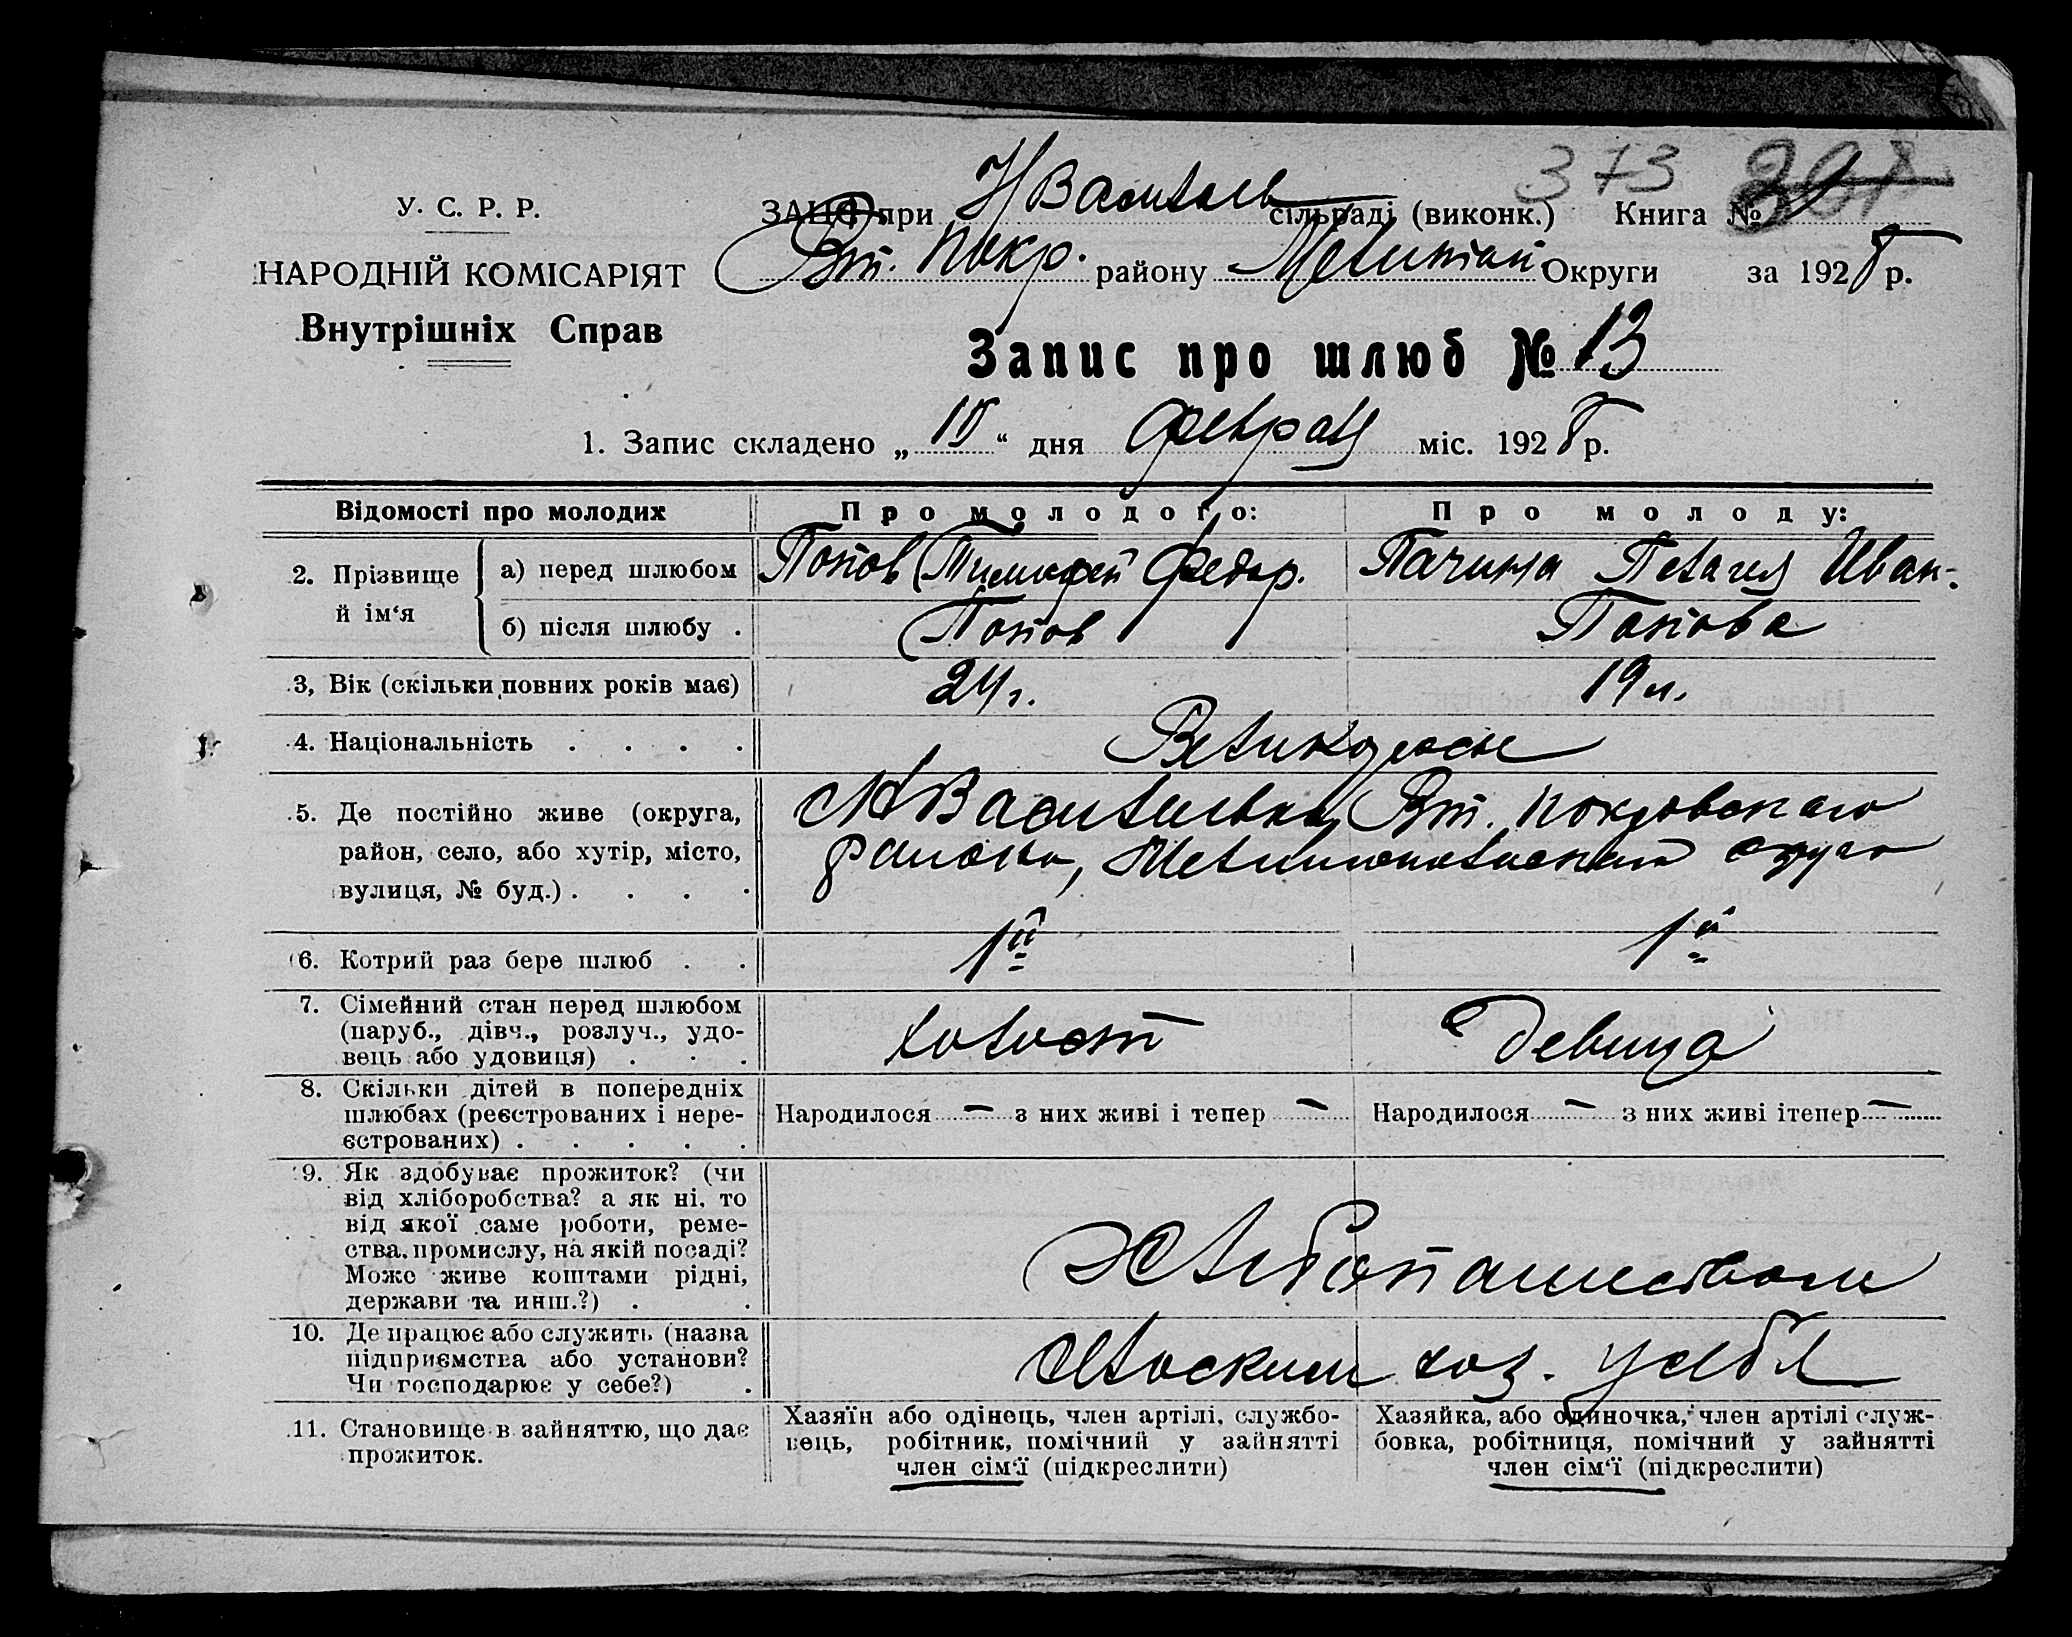 373
У. С. Р. Р.
ЗАПС при Н Василь сільраді (виконк.) Книга №
НАРОДНІЙ КОМІСАРІЯТ
Вт. Покр. району Мелитоп Округи за 1928 р.
Внутрішніх Справ
Запис про шлюб № 13
1. Запис складено „ “ дня февраля міс. 1928 р.
Відомості про молодих Про молодого: Про молоду:
2. Прізвище й ім‘я
а) перед шлюбом Попов Тимофей Федор. Пачина Пелагея Иван.
б) після шлюбу . Попов Попова
3, Вік (скільки повних років має) 24 г. 19 л.
4. Національність . . . . Великороссы
5. Де постійно живе (округа, Н Васильевка, Вт. Покровского
район, село, або хутір, місто, района, Мелитопольского округа
вулиця, № буд.) . . . .
6. Котрий раз бере шлюб . . 1й 1й
7. Сімейний стан перед шлюбом
(паруб., дівч., розлуч., удо- холост девица
вець або удовиця) . . .
8. Скільки дітей в попередніх
шлюбах (реєстрованих і нере- Народилося — з них живі і тепер — Народилося — з них живі ітепер —
єстрованих) . . . . .
9. Як здобуває прожиток? (чи
від хліборобства? а як ні, то
від якої саме роботи, реме-
ства, промислу, на якій посаді? Хлебопашеством
Може живе коштами рідні,
держави та инш.?) . .
10. Де працює або служить (назва
підприємства або установи?
Чи господарює у себе?) .
хоз. у себя
11. Становище в зайняттю, що дає
прожиток.
Хазяїн або одінець, член артілі, службо-
вець, робітник, помічний у зайнятті
член сім‘ї (підкреслити)
Хазяйка, або одиночка, член артілі служ-
бовка, робітниця, помічний у зайнятті
член сім‘ї (підкреслити)